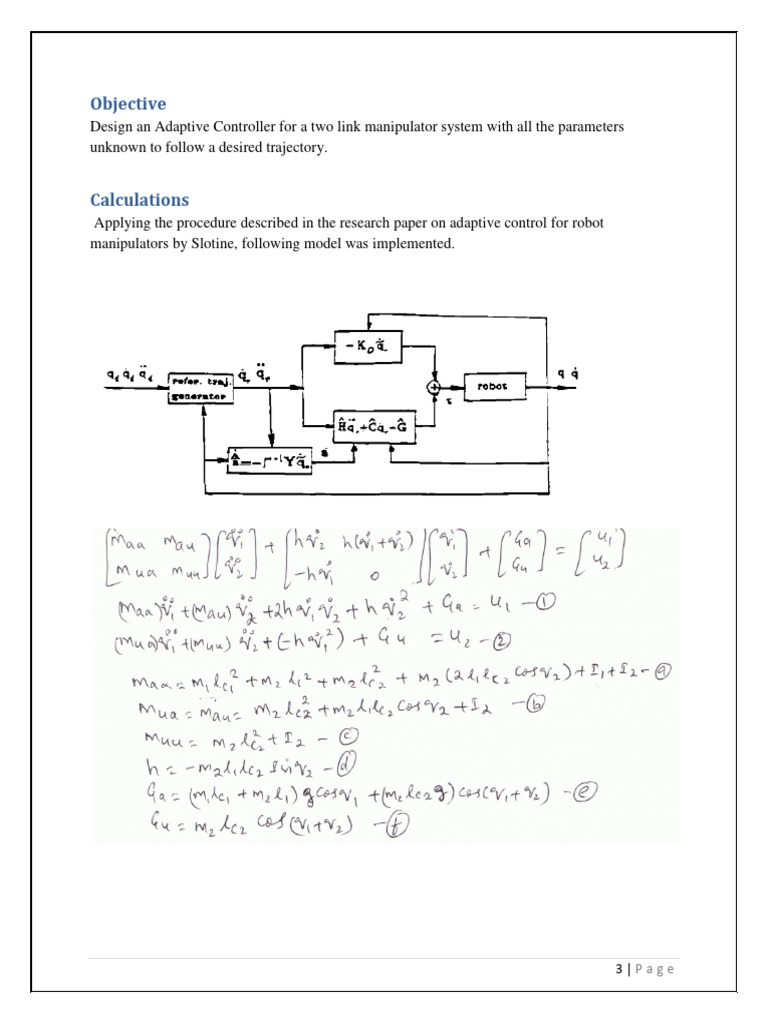 Objective
Design an Adaptive Controller for a two link manipulator system with all the parameters
unknown to follow a desired trajectory.
Calculations
Applying the procedure described in the research paper on adaptive control for robot
manipulators by Slotine, following model was implemented.
-K_D q̃̇
q_d q̇_d q̈_d
refer. traj.
generator
q̇_r q̈_r
+
τ
robot
q q̇
Ĥq̈_r+Ĉq̇_r-Ĝ
â
[Maa Mau; Mua Muu][q̈1; q̈2] + [hq̇2 h(q̇1+q̇2); -hq̇1 0][q̇1; q̇2] + [Ga; Gu] = [u1; u2]
(Maa)q̈1+(Mau)q̈2+2hq̇1q̇2+hq̇2² + Ga = u1 -①
(Mua)q̈1+(Muu)q̈2+(-hq̇1²) + Gu = u2 -②
Maa = m1lc1²+m2l1²+m2lc2²+m2(2l1lc2cosq2)+I1+I2 -ⓐ
Mua = Mau = m2lc2²+m2l1lc2cosq2+I2 -ⓑ
Muu = m2lc2²+I2 -ⓒ
h = -m2l1lc2sinq2 -ⓓ
Ga = (m1lc1+m2l1)gcosq1+(m2lc2g)cos(q1+q2) -ⓔ
Gu = m2lc2cos(q1+q2) -ⓕ
3 | Page